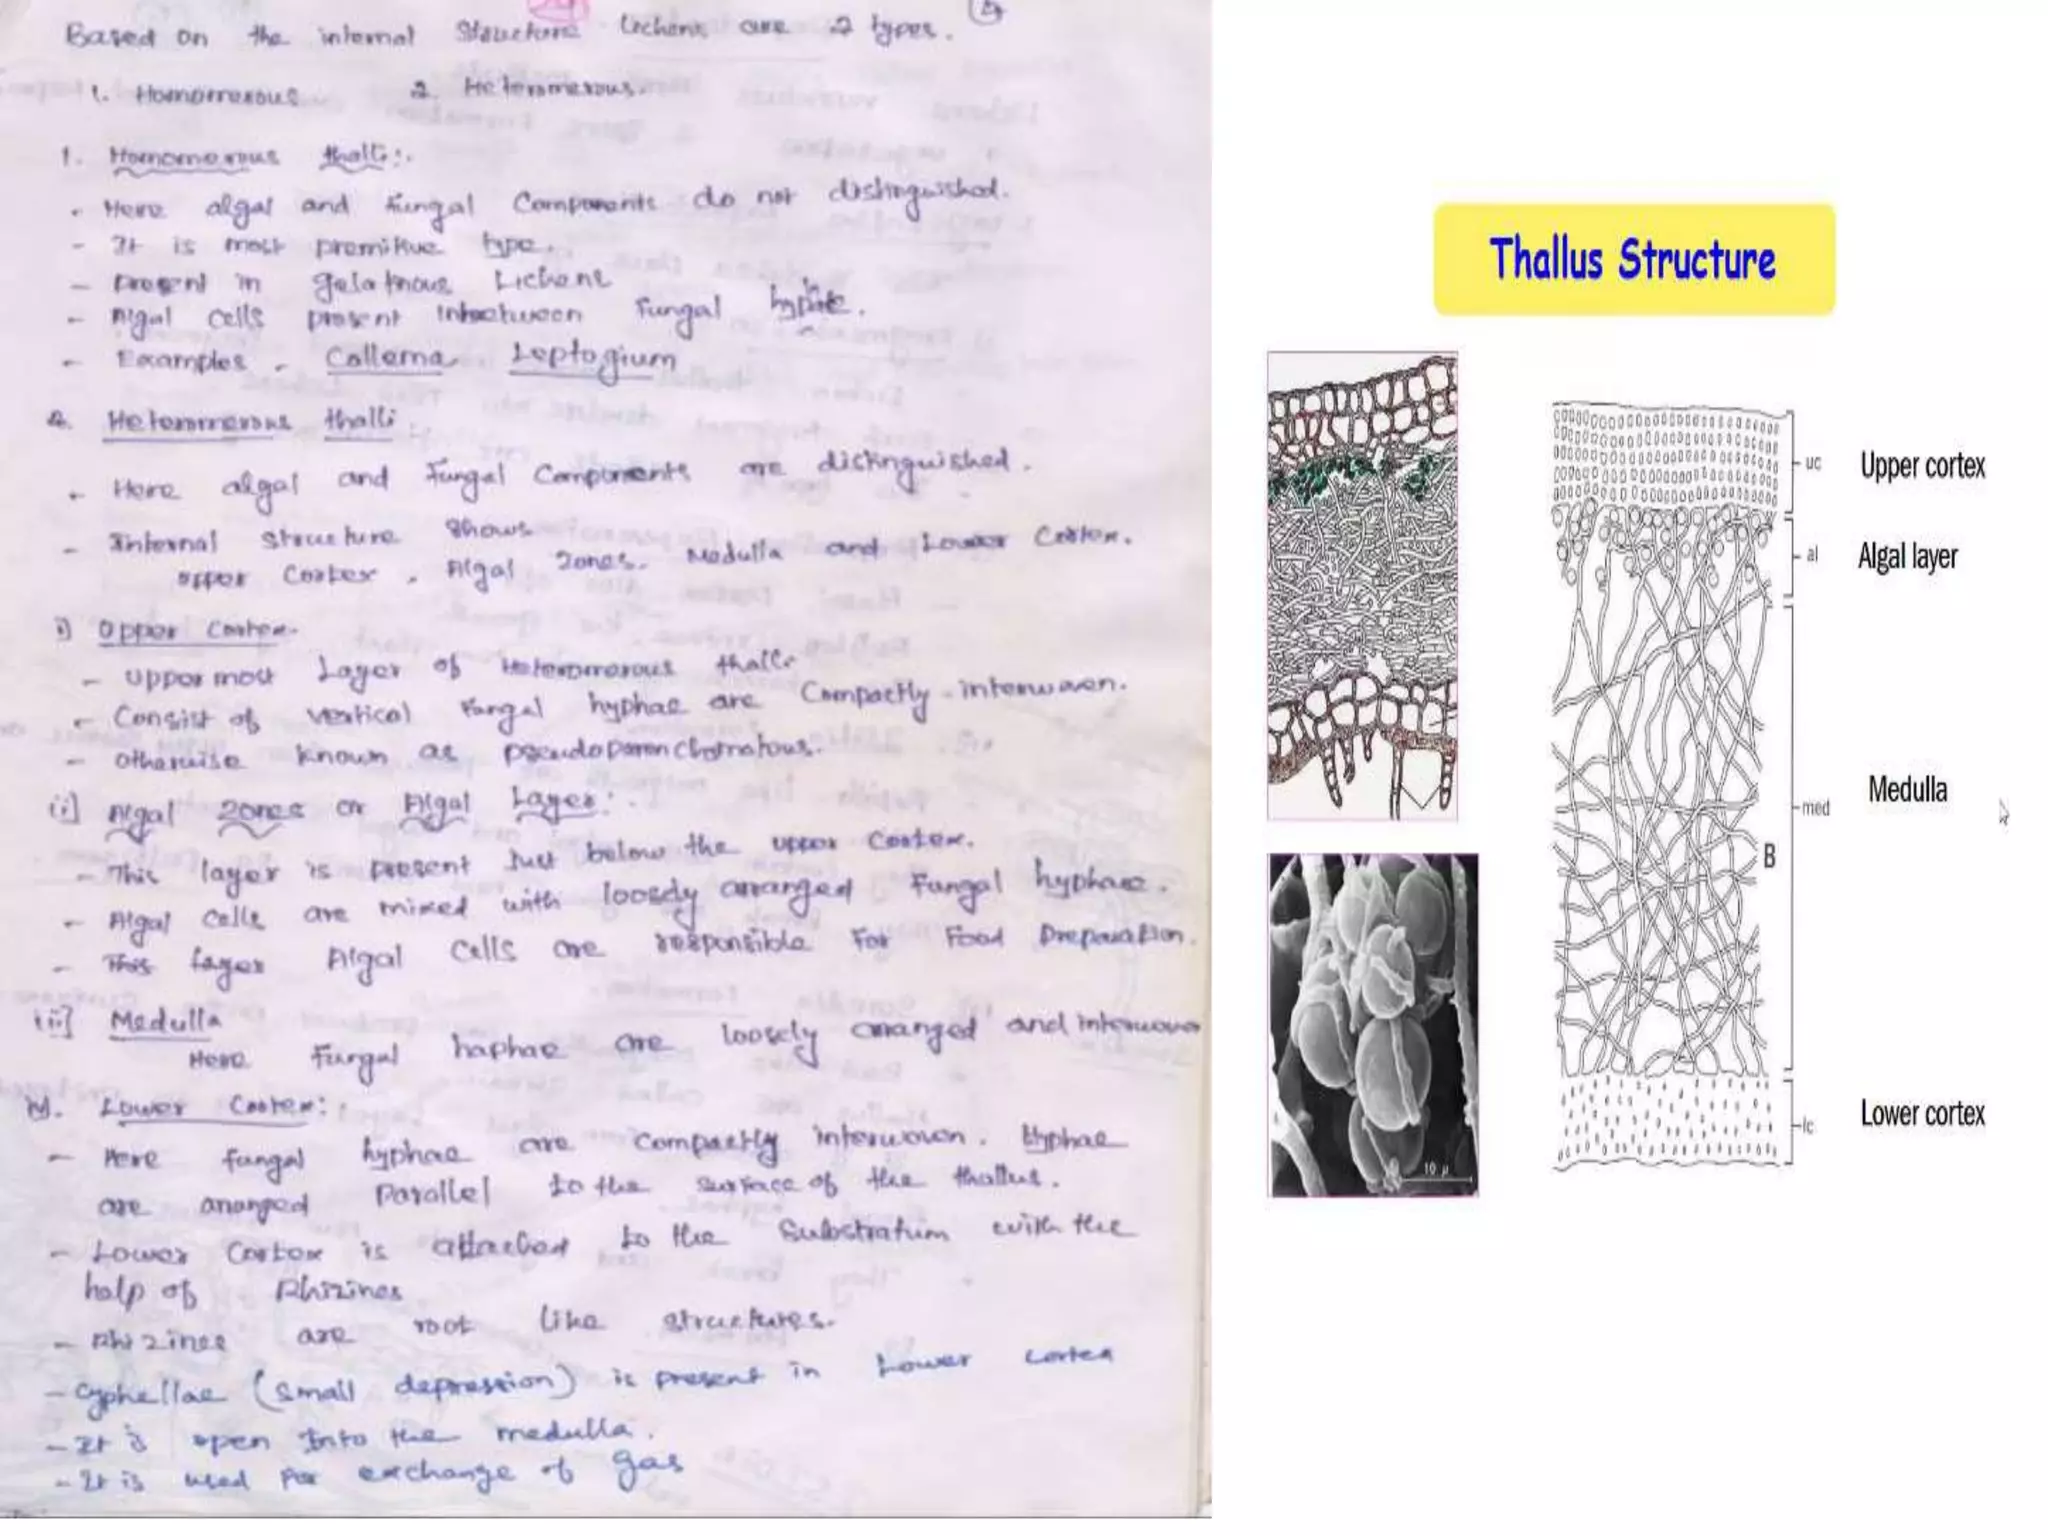 Based on the internal Structure Lichens are 2 types.
1. Homomerous 2. Heteromerous.
1. Homomerous thalli:.
- Here algal and Fungal Components do not distinguished.
- It is most premitive type.
- Present in gelatnous Lichens
- Algal cells present inbetween Fungal hyphae.
- Examples - Collema Leptogium
2. Heteromerous thalli
- Here algal and Fungal Components are distinguished.
- Internal structure shows
upper Cortex, Algal Zones. Medulla and Lower Cortex.
i) Upper Cortex.
- Upper most Layer of Heteromerous thalli
- Consist of vertical Fungal hyphae are Compactly interwoven.
- Otherwise known as pseudoparenchymatous.
ii] Algal Zones or Algal Layer:.
- This layer is present Just below the upper Cortex.
- Algal cells are mixed with loosely arranged Fungal hyphae.
- This layer Algal Cells are responsible For Food Preparation.
iii] Medulla
Here Fungal haphae are loosely arranged and interwoven
iv. Lower Cortex:.
- Here fungal hyphae are compactly interwoven. Hyphae
are arranged Parallel to the surface of the thallus.
- Lower Cortex is attached to the Substratum with the
help of Rhizines
- Rhizines are root like structures.
- Cyphellae (Small depression) is present in Lower cortex
- It is open Into the medulla.
- It is used for exchange of gas
Thallus Structure
uc Upper cortex
al Algal layer
med Medulla
B
lc Lower cortex
10 µ